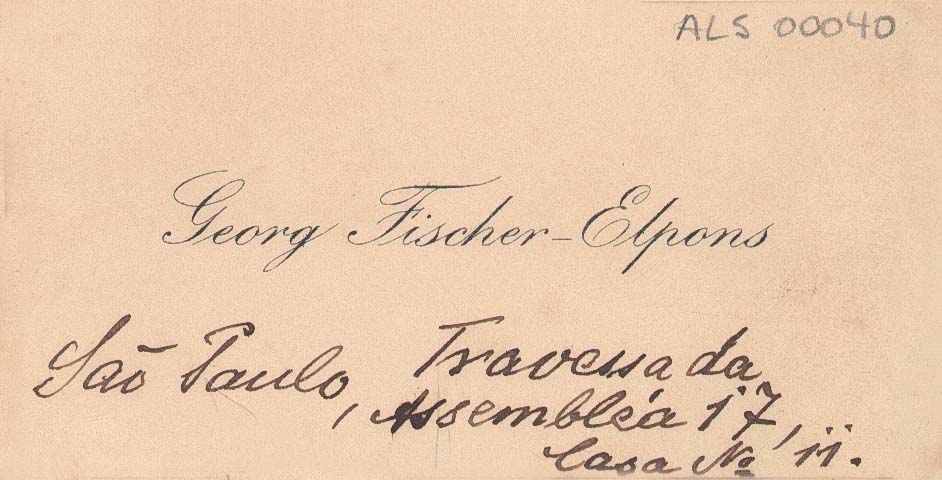 ALS 00040
Georg Fischer-Elpons
São Paulo, Travessa da
Assembléa 17,
Casa Nº 11.